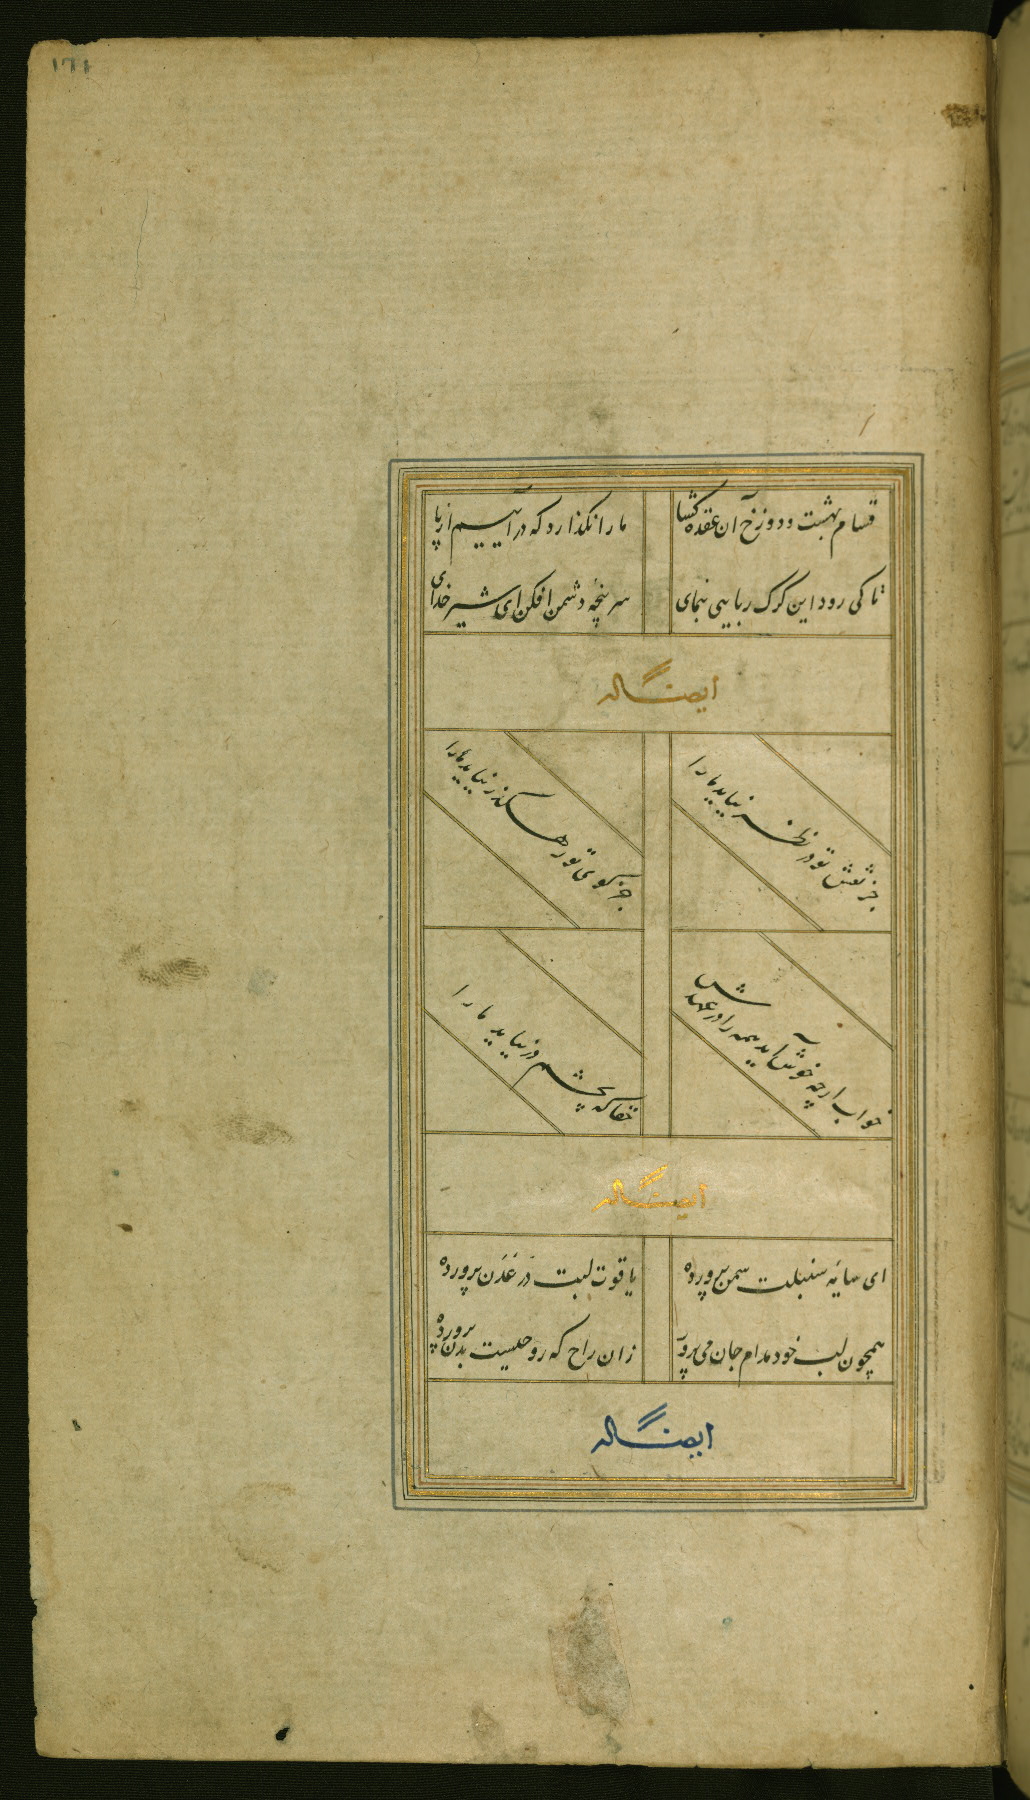 ۱۷۱
قسام بهشت و دوزخ آن عقده کشا
ما را نکذارد که در آییم از پا
تا کی رود این کرک ربایی بنمای
سرپنجهٔ دشمن افکن ای شیر خدای
ایضاً له
جز نقش تو در نظر نیاید ما را
جز کوی تو رهگذر نیاید ما را
خواب ارچه خوش آید همه را در عهدش
حقا که بچشم در نیاید ما را
ایضاً له
ای سایهٔ سنبلت سمن پرورده
یاقوت لبت در عدن پرورده
همچون لب خود مدام جان می پرور
زان راح که روحیست بدن پرورده
ایضاً له